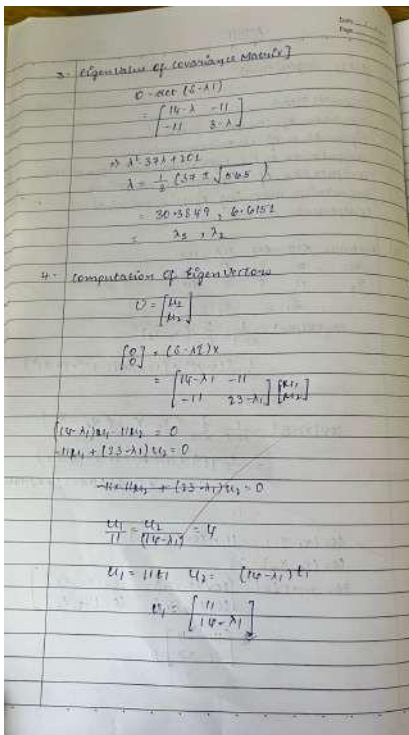 Date
Page
3. Eigenvalue of Covariance Matrix]
0 = det (S - λI)
= [14-λ -11
-11 3-λ]
⇒ λ² 37λ + 201
λ = 1/2 (37 ± √565)
= 30.3849, 6.6151
= λ₁, λ₂
4. Computation of Eigen Vectors
U = [u₁
u₂]
[0
0] = (S - λI) X
= [14-λ₁ -11
-11 23-λ₁] [u₁
u₂]
(14-λ₁)u₁ - 11u₂ = 0
-11u₁ + (23-λ₁)u₂ = 0
-11 + (23-λ₁)u₂ = 0
u₁/11 = u₂/(14-λ₁) = t
u₁ = 11t₁ u₂ = (14-λ₁)t₁
u₁ = [11
14-λ₁]